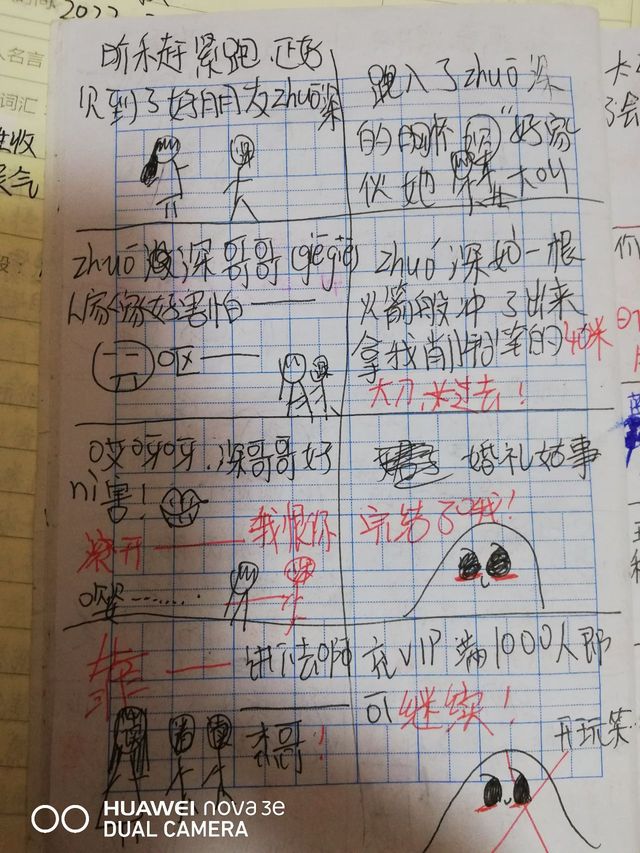 2022
人名言
词汇
收
天气
阶禾赶紧跑,正好
见到了好朋友zhuō深
跑入了zhuō深
的胸怀 好家
伙她 大叫
zhuō 深哥哥(giēgiē)
人家家好害怕——
呕——
zhuō深如一根
火箭般冲了出来
拿我削铅笔的40米
大刀,米过去!
哎呀呀.深哥哥好
nì害!
滚开——我恨你
婚礼故事
完结了哦!
靠——讲下去啊
木哥!
充VIP满1000人即
可继续!
开玩笑
HUAWEI nova 3e
DUAL CAMERA